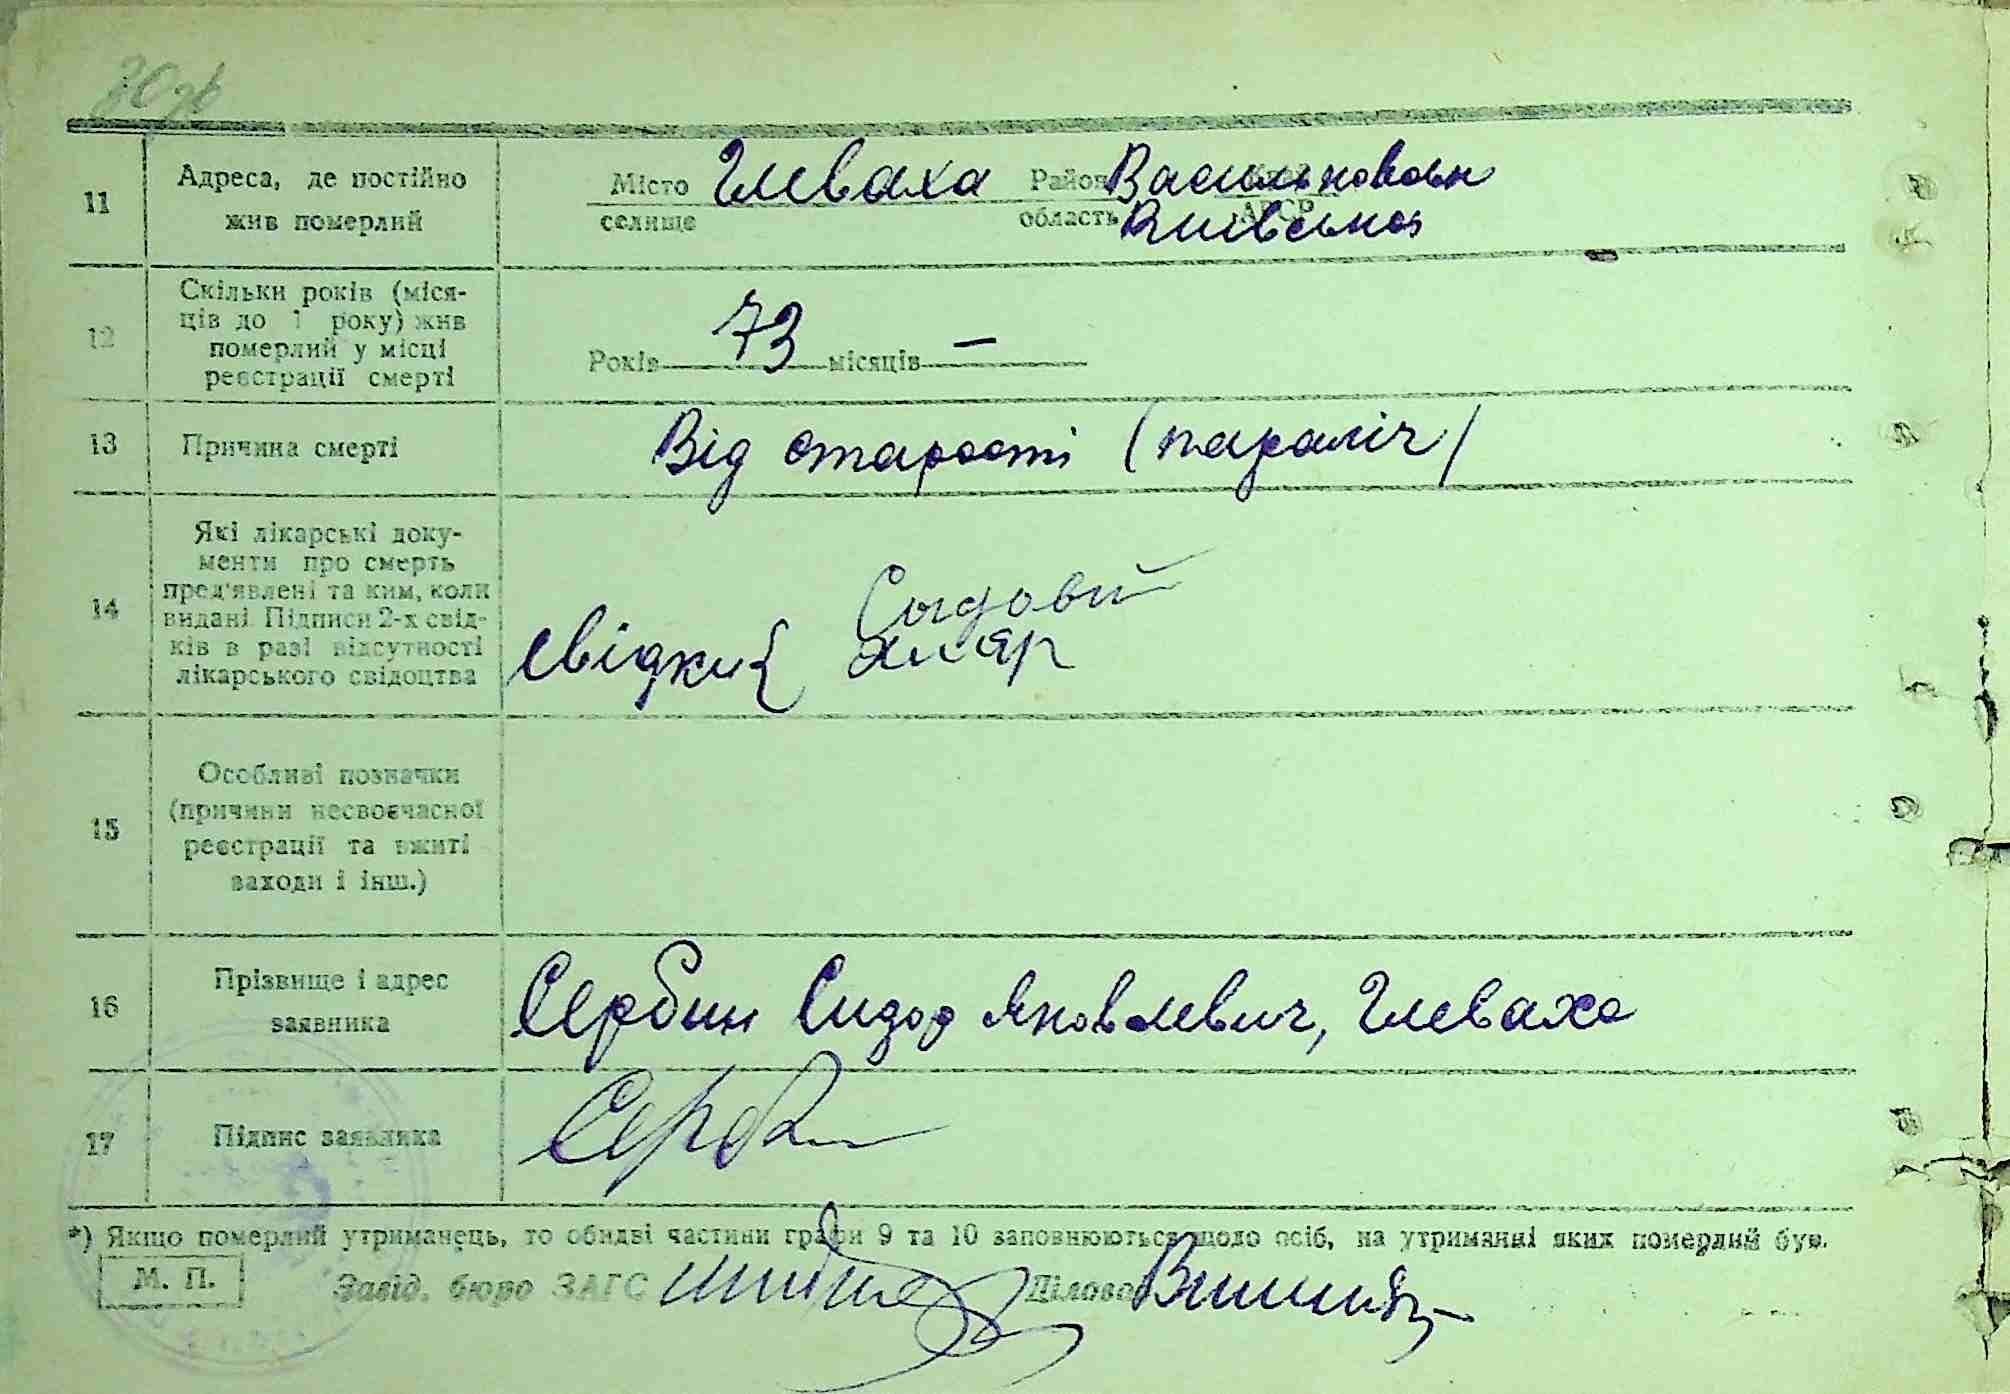 11
Адреса, де постійно
жив померлий
Місто Глеваха Район Васильковськ
селище область Київської
АРСР
12
Скільки років (міся-
ців до 1 року) жив
померлий у місці
реєстрації смерті
Років 73 місяців —
13
Причина смерті
Від старості (параліч)
14
Які лікарські доку-
менти про смерть
пред'явлені та ким, коли
видані. Підписи 2-х свід-
ків в разі відсутності
лікарського свідоцтва
свідки {
15
Особливі позначки
(причини несвоєчасної
реєстрації та вжиті
заходи і інш.)
16
Прізвище і адрес
заявника
Сербин Сидор Яковлевич, Глеваха
17
Підпис заявника
Серб
*) Якщо померлий утриманець, то обидві частини графи 9 та 10 заповнюються щодо осіб, на утриманні яких померлий був.
М. П.
Завід. бюро ЗАГС Діловод